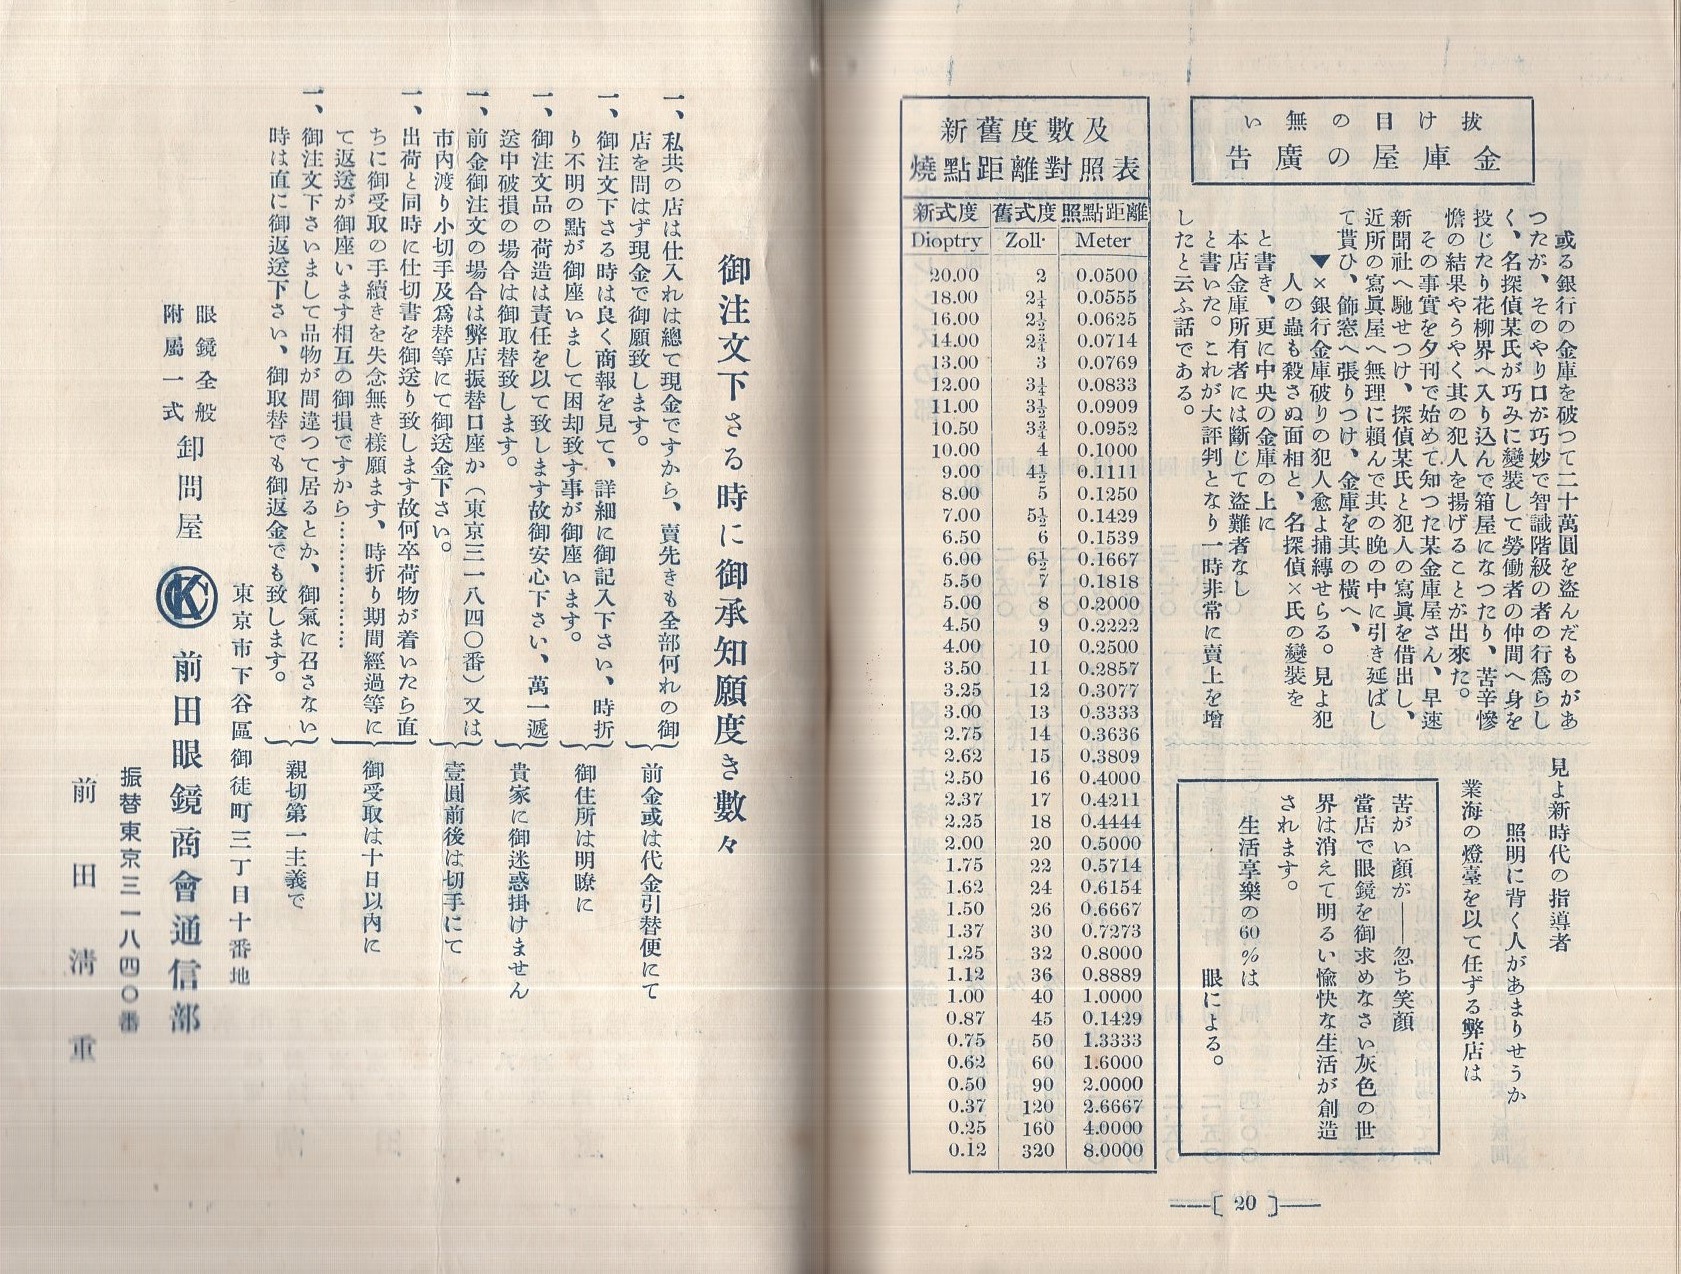 抜け目の無い
金庫屋の廣告
或る銀行の金庫を破つて二十萬圓を盗んだものがあ
つたが、そのやり口が巧妙で智識階級の者の行爲らし
く、名探偵某氏が巧みに變裝して勞働者の仲間へ身を
投じたり花柳界へ入り込んで箱屋になつたり、苦辛慘
憺の結果やうやく其の犯人を揚げることが出來た。
その事實を夕刊で始めて知つた某金庫屋さん、早速
新聞社へ馳せつけ、探偵某氏と犯人の寫眞を借出し、
近所の寫眞屋へ無理に賴んで其の晩の中に引き延ばし
て貰ひ、飾窓へ張りつけ、金庫を其の横へ、
▼×銀行金庫破りの犯人愈よ捕縛せらる。見よ犯
人の蟲も殺さぬ面相と、名探偵×氏の變裝を
と書き、更に中央の金庫の上に
本店金庫所有者には斷じて盜難者なし
と書いた。これが大評判となり一時非常に賣上を增
したと云ふ話である。
見よ新時代の指導者
照明に背く人があまりせうか
業海の燈臺を以て任ずる弊店は
苦がい顔が――忽ち笑顔
當店で眼鏡を御求めなさい灰色の世
界は消えて明るい愉快な生活が創造
されます。
生活享樂の60%は
眼による。
新舊度數及
燒點距離對照表
新式度 舊式度 照點距離
Dioptry Zoll· Meter
20.00 2 0.0500
18.00 2¼ 0.0555
16.00 2½ 0.0625
14.00 2¾ 0.0714
13.00 3 0.0769
12.00 3¼ 0.0833
11.00 3½ 0.0909
10.50 3¾ 0.0952
10.00 4 0.1000
9.00 4½ 0.1111
8.00 5 0.1250
7.00 5½ 0.1429
6.50 6 0.1539
6.00 6½ 0.1667
5.50 7 0.1818
5.00 8 0.2000
4.50 9 0.2222
4.00 10 0.2500
3.50 11 0.2857
3.25 12 0.3077
3.00 13 0.3333
2.75 14 0.3636
2.62 15 0.3809
2.50 16 0.4000
2.37 17 0.4211
2.25 18 0.4444
2.00 20 0.5000
1.75 22 0.5714
1.62 24 0.6154
1.50 26 0.6667
1.37 30 0.7273
1.25 32 0.8000
1.12 36 0.8889
1.00 40 1.0000
0.87 45 0.1429
0.75 50 1.3333
0.62 60 1.6000
0.50 90 2.0000
0.37 120 2.6667
0.25 160 4.0000
0.12 320 8.0000
20
御注文下さる時に御承知願度き數々
一、私共の店は仕入れは總て現金ですから、賣先きも全部何れの御
店を問はず現金で御願致します。
前金或は代金引替便にて
一、御注文下さる時は良く商報を見て、詳細に御記入下さい、時折
り不明の點が御座いまして困却致す事が御座います。
御住所は明瞭に
一、御注文品の荷造は責任を以て致します故御安心下さい、萬一遞
送中破損の場合は御取替致します。
貴家に御迷惑掛けません
一、前金御注文の場合は弊店振替口座か（東京三一八四〇番）又は
市內渡り小切手及爲替等にて御送金下さい。
壹圓前後は切手にて
一、出荷と同時に仕切書を御送り致します故何卒荷物が着いたら直
ちに御受取の手續きを失念無き樣願ます、時折り期間經過等に
て返送が御座います相互の御損ですから………………
御受取は十日以內に
一、御注文下さいまして品物が間違つて居るとか、御氣に召さない
時は直に御返送下さい、御取替でも御返金でも致します。
親切第一主義で
東京市下谷區御徒町三丁目十番地
眼鏡全般
附屬一式
卸問屋 CK 前田眼鏡商會通信部
振替東京三一八四〇番
前田淸重